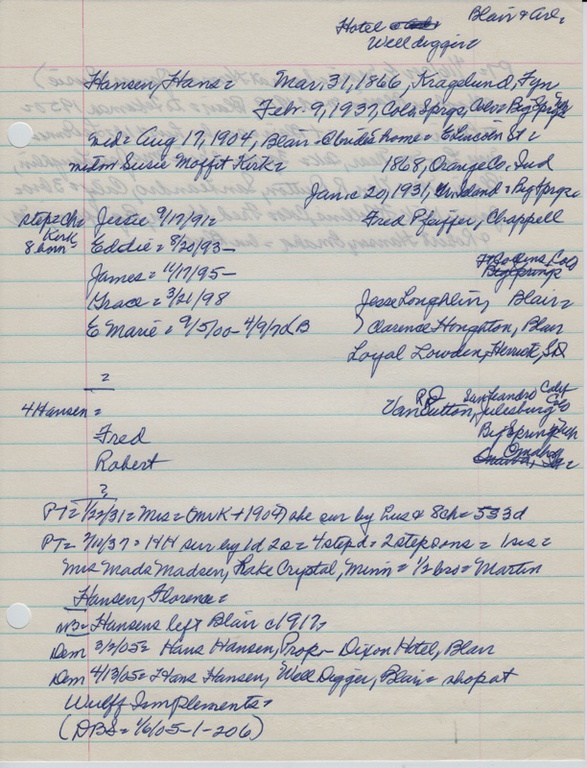 Blair & Arl.
Hotel
Well digger
Hansen, Hans = Mar, 31, 1866, Kragelund, Fyn
Febr. 9, 1937, Colo. Sprgs, Colo = Big Sprgs
md = Aug 17, 1904, Blair = Brides home = E Lincoln St =
Susie Moffit Kirk = 1868, Orange Co, Ind
Jan = 20, 1931, = Big Sprgs
step = ch = Jessie 9/17/91 = Fred Pfeiffer, Chappell
Kirk
8 born = Eddie = 8/20/93 - Ft Collins, Colo
Big Springs
James = 11/17/95 -
Grace = 3/21/98 Jesse Loughlin, Blair =
E Marie = 9/5/00 - 4/9/70 LB Clarence Houghton, Blair
Loyal Lowden, Herrick, SD
?
San Leandro Calif
4 Hansen = RD Van Dutton, Julesburg Colo
Fred Big Springs
Robert Omaha
?
PT = 1/22/31 = Mrs = (mrk + 1904) she sur by hus & 8ch = 533d
PT = 2/10/37 = HH sur by 1d 2s = 4stepd = 2stepsons = 1sis =
Mrs Mads Madsen, Lake Crystal, Minn = 1/2 bro = Martin
Hansen, Florence =
Hansens left Blair c1917,
Dem 3/2/05 = Hans Hansen, Prop - Dixon Hotel, Blair
Dem 4/13/05 = Hans Hansen, Well Digger, Blair = shop at
Wulff Implements =
(DBS = 1/6/05-1-206)